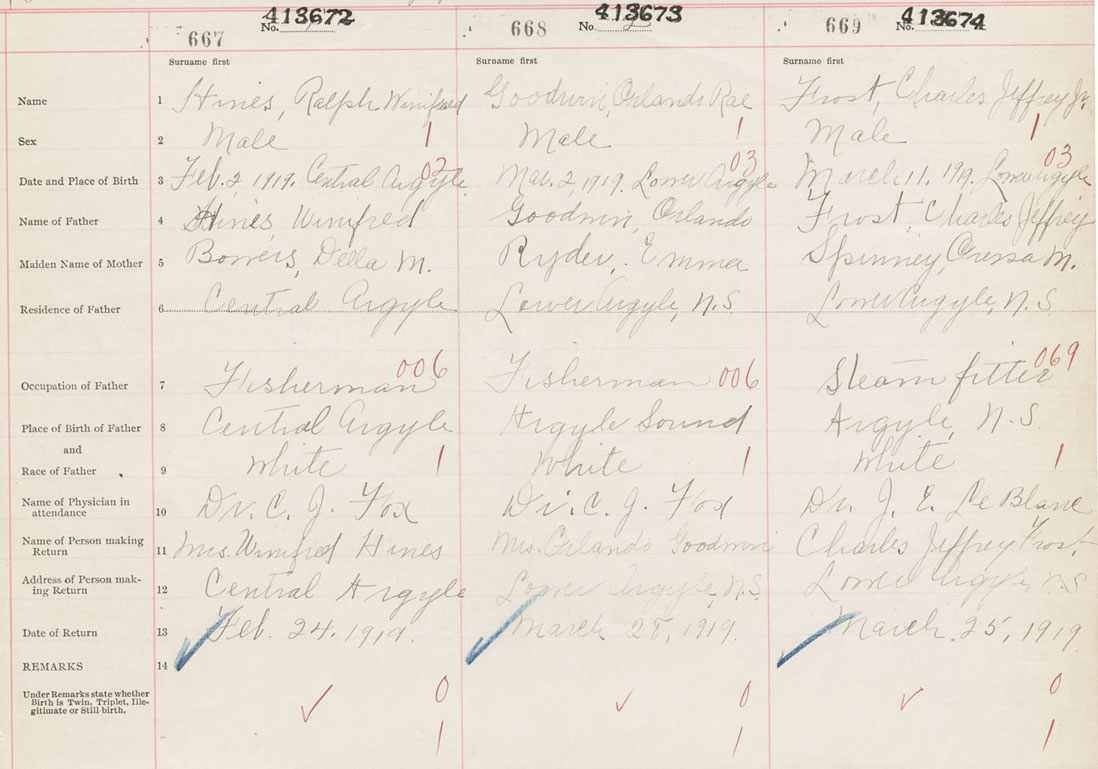 413672 413673 413674
667 No. 668 No. 669 No.
Surname first Surname first Surname first
Name 1 Hines, Ralph Winifred Goodwin, Orlando Rae Frost, Charles Jeffrey Jr.
Sex 2 Male 1 Male 1 Male 1
Date and Place of Birth 3 Feb. 2, 1919. Central Argyle 03 Mar. 2, 1919. Lower Argyle 03 March 11, 1919. Lower Argyle 03
Name of Father 4 Hines, Winifred Goodwin, Orlando Frost, Charles Jeffrey
Maiden Name of Mother 5 Bowers, Della M. Ryder, Emma Spinney, M.
Residence of Father 6 Central Argyle Lower Argyle, N.S Lower Argyle, N.S.
Occupation of Father 7 Fisherman 006 Fisherman 006 Steam fitter 069
Place of Birth of Father 8 Central Argyle Argyle Sound Argyle, N.S
and
Race of Father 9 White 1 White 1 White 1
Name of Physician in
attendance 10 Dr. C. J. Fox Dr. C. J. Fox Dr. J. E. Le Blanc
Name of Person making
Return 11 Mrs. Winifred Hines Mrs. Orlando Goodwin Charles Jeffrey Frost
Address of Person mak-
ing Return 12 Central Argyle Lower Argyle, N.S. Lower Argyle, N.S
Date of Return 13 Feb. 24. 1919. March 28, 1919. March. 25, 1919
REMARKS 14
Under Remarks state whether
Birth is Twin, Triplet, Ille-
gitimate or Still-birth. 0 0 0
1 1 1